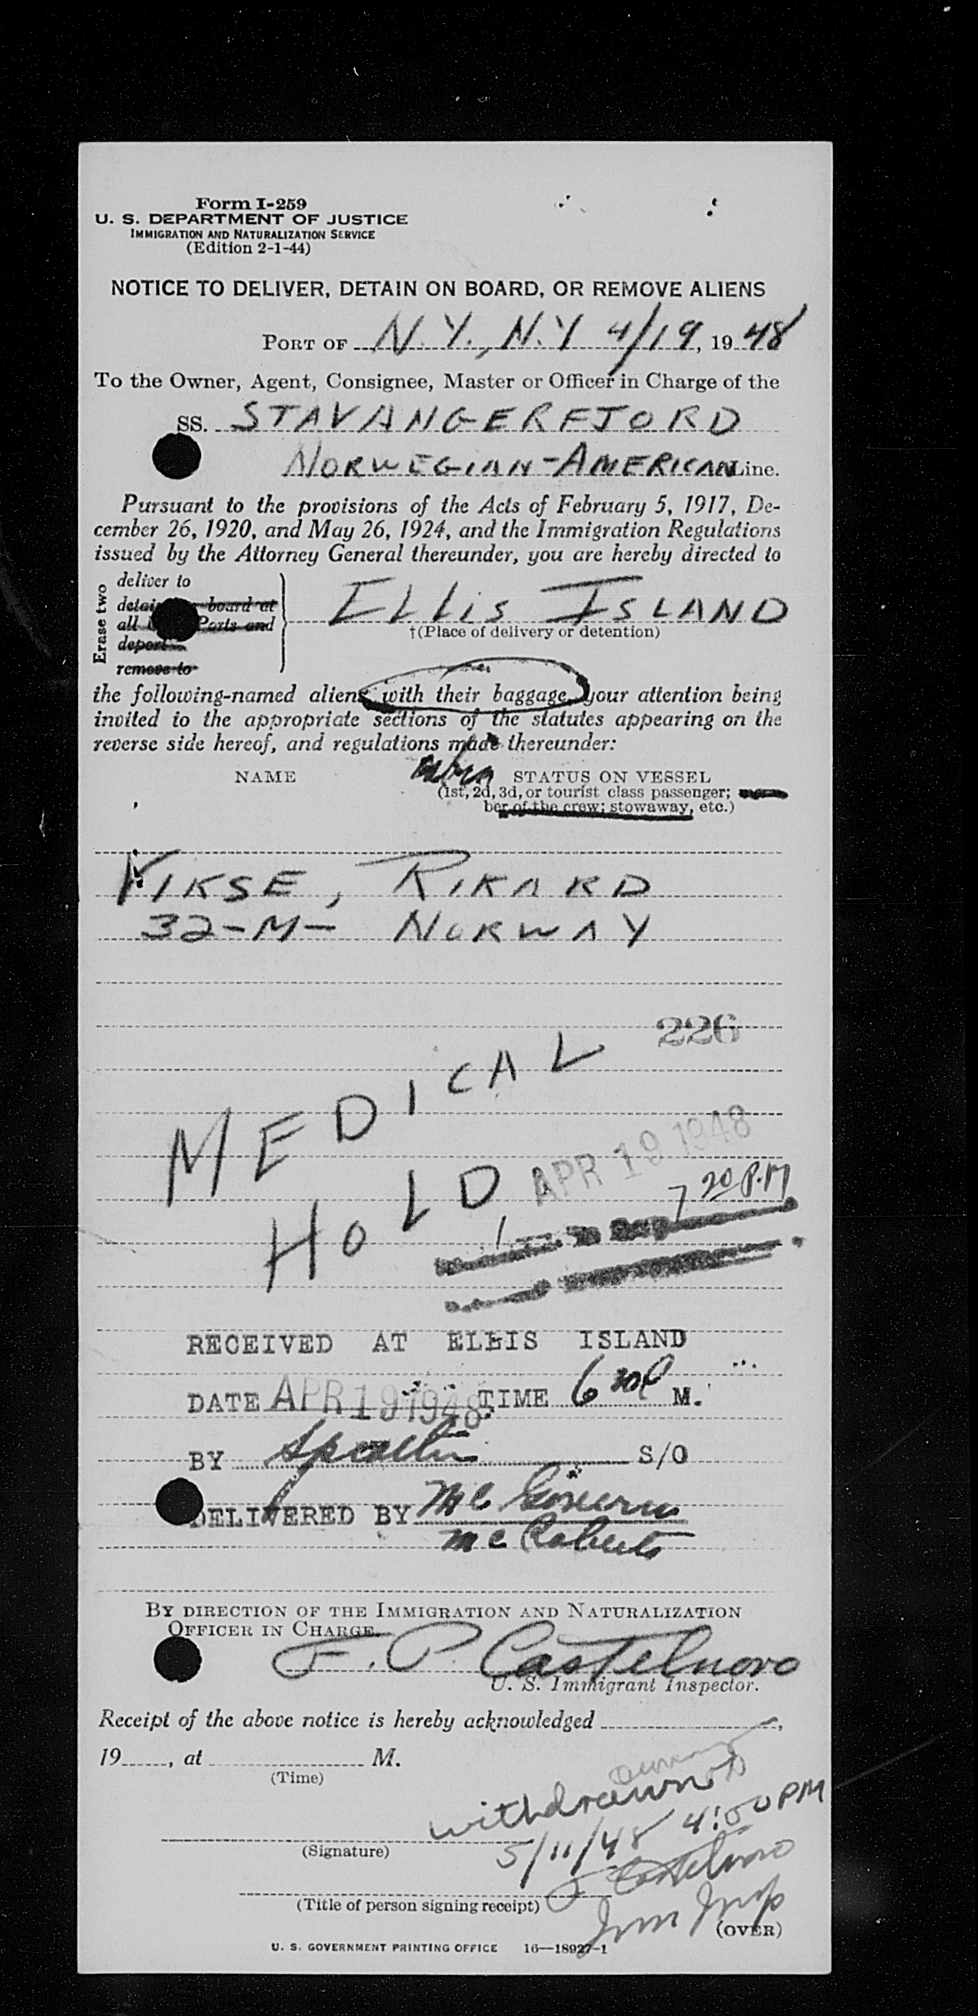 Form I-259
U. S. DEPARTMENT OF JUSTICE
IMMIGRATION AND NATURALIZATION SERVICE
(Edition 2-1-44)
NOTICE TO DELIVER, DETAIN ON BOARD, OR REMOVE ALIENS
PORT OF N.Y., N.Y 4/19, 1948
To the Owner, Agent, Consignee, Master or Officer in Charge of the
SS. STAVANGERFJORD
NORWEGIAN-AMERICAN Line.
Pursuant to the provisions of the Acts of February 5, 1917, De-
cember 26, 1920, and May 26, 1924, and the Immigration Regulations
issued by the Attorney General thereunder, you are hereby directed to
Erase two
deliver to
board at
all Ports and
deport
remove to
ELLIS ISLAND
†(Place of delivery or detention)
the following-named aliens with their baggage, your attention being
invited to the appropriate sections of the statutes appearing on the
reverse side hereof, and regulations made thereunder:
NAME STATUS ON VESSEL
(1st, 2d, 3d, or tourist class passenger;
ber of the crew; stowaway, etc.)
VIKSE, RIKARD
32-M- NORWAY
226
MEDICAL
HOLD
APR 19 1948
7 20 P.M
RECEIVED AT ELLIS ISLAND
DATE APR 19 1948 TIME 6 M.
BY S/O
DELIVERED BY McGovern
McRoberts
BY DIRECTION OF THE IMMIGRATION AND NATURALIZATION
OFFICER IN CHARGE.
F. P. Castelnovo
U. S. Immigrant Inspector.
Receipt of the above notice is hereby acknowledged ,
19 , at M.
(Time)
withdrawn
5/11/48 4:00 PM
(Signature)
F Castelnovo
(Title of person signing receipt)
Imm Insp
(OVER)
U. S. GOVERNMENT PRINTING OFFICE 16—18927-1